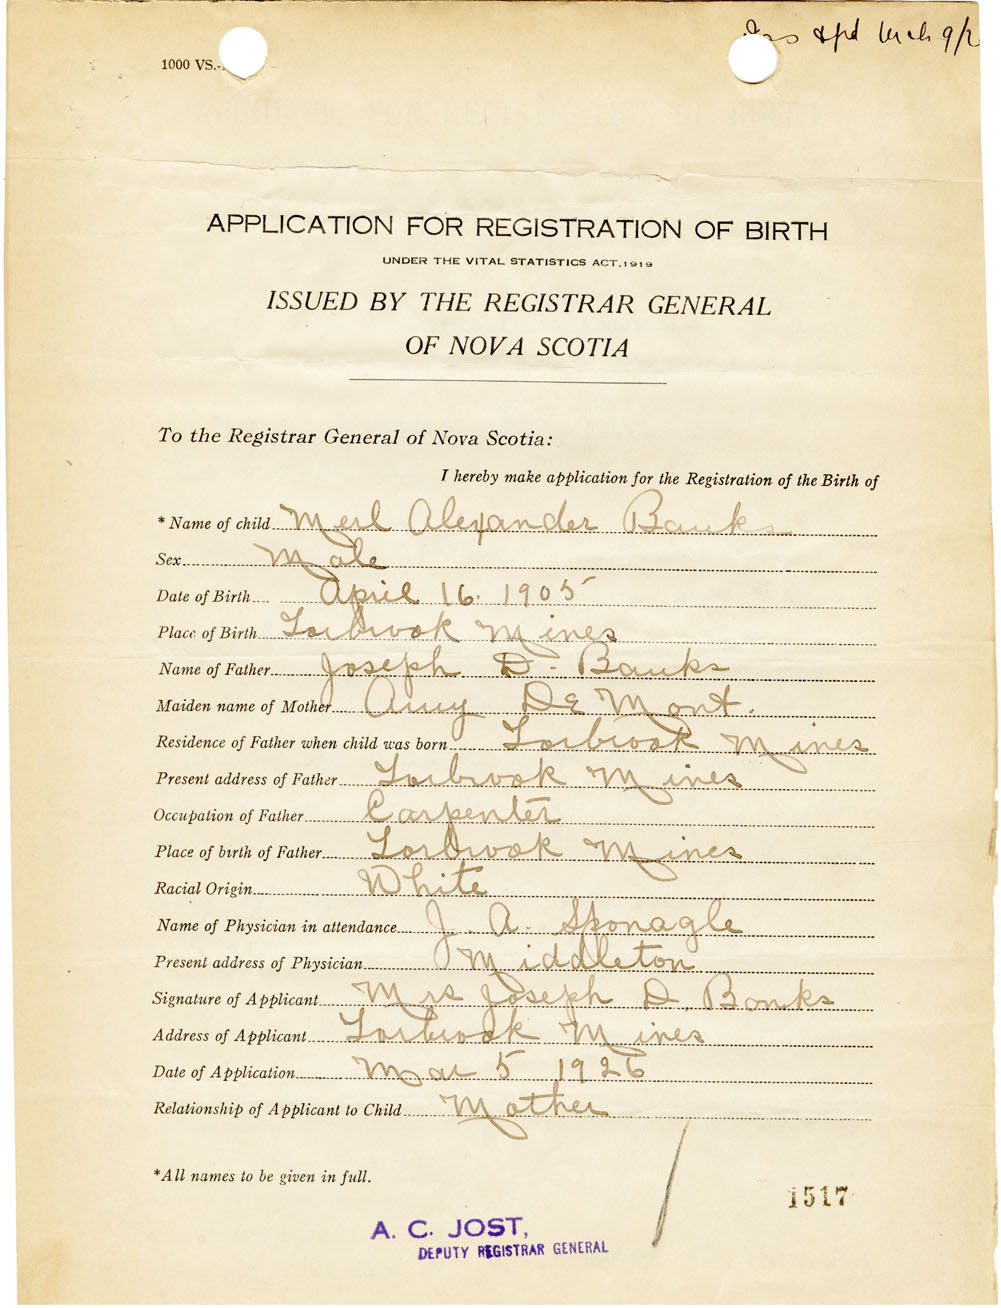 1000 VS.-
APPLICATION FOR REGISTRATION OF BIRTH
UNDER THE VITAL STATISTICS ACT, 1919
ISSUED BY THE REGISTRAR GENERAL
OF NOVA SCOTIA
To the Registrar General of Nova Scotia:
I hereby make application for the Registration of the Birth of
* Name of child Merl Alexander Banks
Sex Male
Date of Birth April 16. 1905
Place of Birth Torbrook Mines
Name of Father Joseph D. Banks
Maiden name of Mother Amy DeMont.
Residence of Father when child was born Torbrook Mines
Present address of Father Torbrook Mines
Occupation of Father Carpenter
Place of birth of Father Torbrook Mines
Racial Origin White
Name of Physician in attendance J. A. Sponagle
Present address of Physician Middleton
Signature of Applicant Mrs Joseph D. Banks
Address of Applicant Torbrook Mines
Date of Application Mar 5 1926
Relationship of Applicant to Child Mother
*All names to be given in full.
1517
A. C. JOST,
DEPUTY REGISTRAR GENERAL